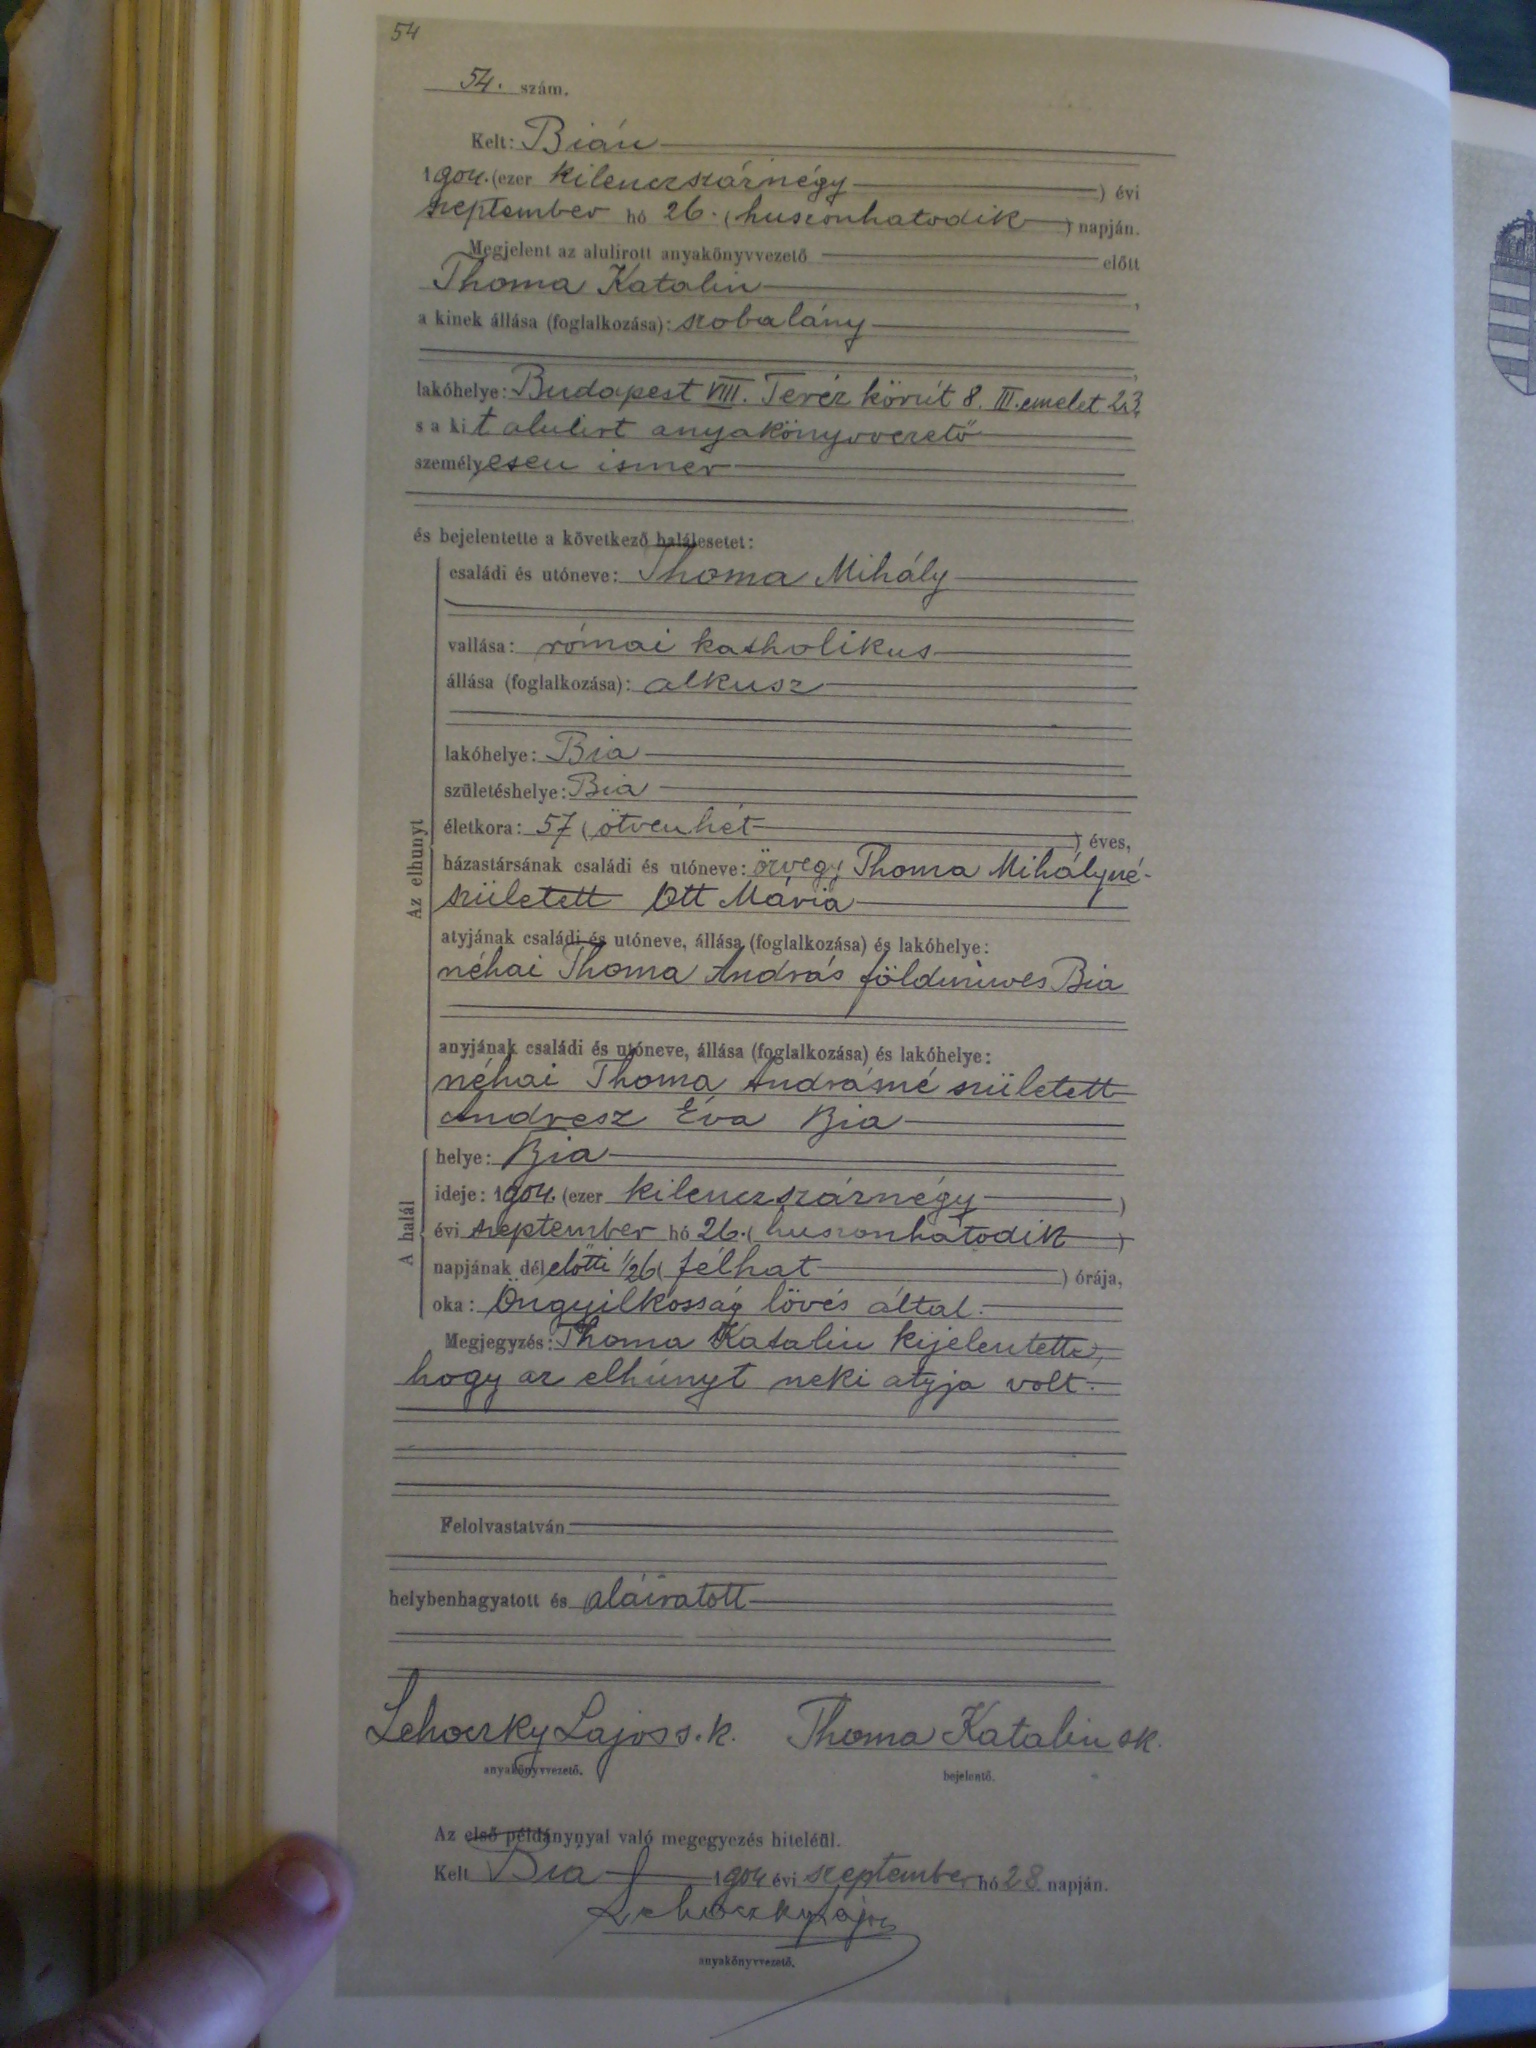 54
54. szám.
Kelt: Bián
1904. (ezer kilenczszáznégy) évi
szeptember hó 26. (huszonhatodik) napján.
Megjelent az alulirott anyakönyvvezető előtt
Thoma Katalin,
a kinek állása (foglalkozása): szobalány
lakóhelye: Budapest VIII. Teréz körút 8. III. emelet 23.
s a kit alulirt anyakönyvvezető
személyesen ismer
és bejelentette a következő halálesetet:
Az elhunyt
családi és utóneve: Thoma Mihály
vallása: római katholikus
állása (foglalkozása): alkusz
lakóhelye: Bia
születéshelye: Bia
életkora: 57 (ötvenhét) éves,
házastársának családi és utóneve: özvegy Thoma Mihályné
született Ott Mária
atyjának családi és utóneve, állása (foglalkozása) és lakóhelye:
néhai Thoma András földmives Bia
anyjának családi és utóneve, állása (foglalkozása) és lakóhelye:
néhai Thoma Andrásné született
Andresz Éva Bia
A halál
helye: Bia
ideje: 1904. (ezer kilenczszáznégy)
évi szeptember hó 26. (huszonhatodik)
napjának délelőtti 1/26 (félhat) órája,
oka: Öngyilkosság lövés által.
Megjegyzés: Thoma Katalin kijelentette,
hogy az elhúnyt neki atyja volt.
Felolvastatván
helybenhagyatott és aláíratott
Lehoczky Lajos s.k. Thoma Katalin sk.
anyakönyvvezető. bejelentő.
Az első példánynyal való megegyezés hiteléül.
Kelt Bia 1904 évi szeptember hó 28 napján.
Lehoczky Lajos
anyakönyvvezető.